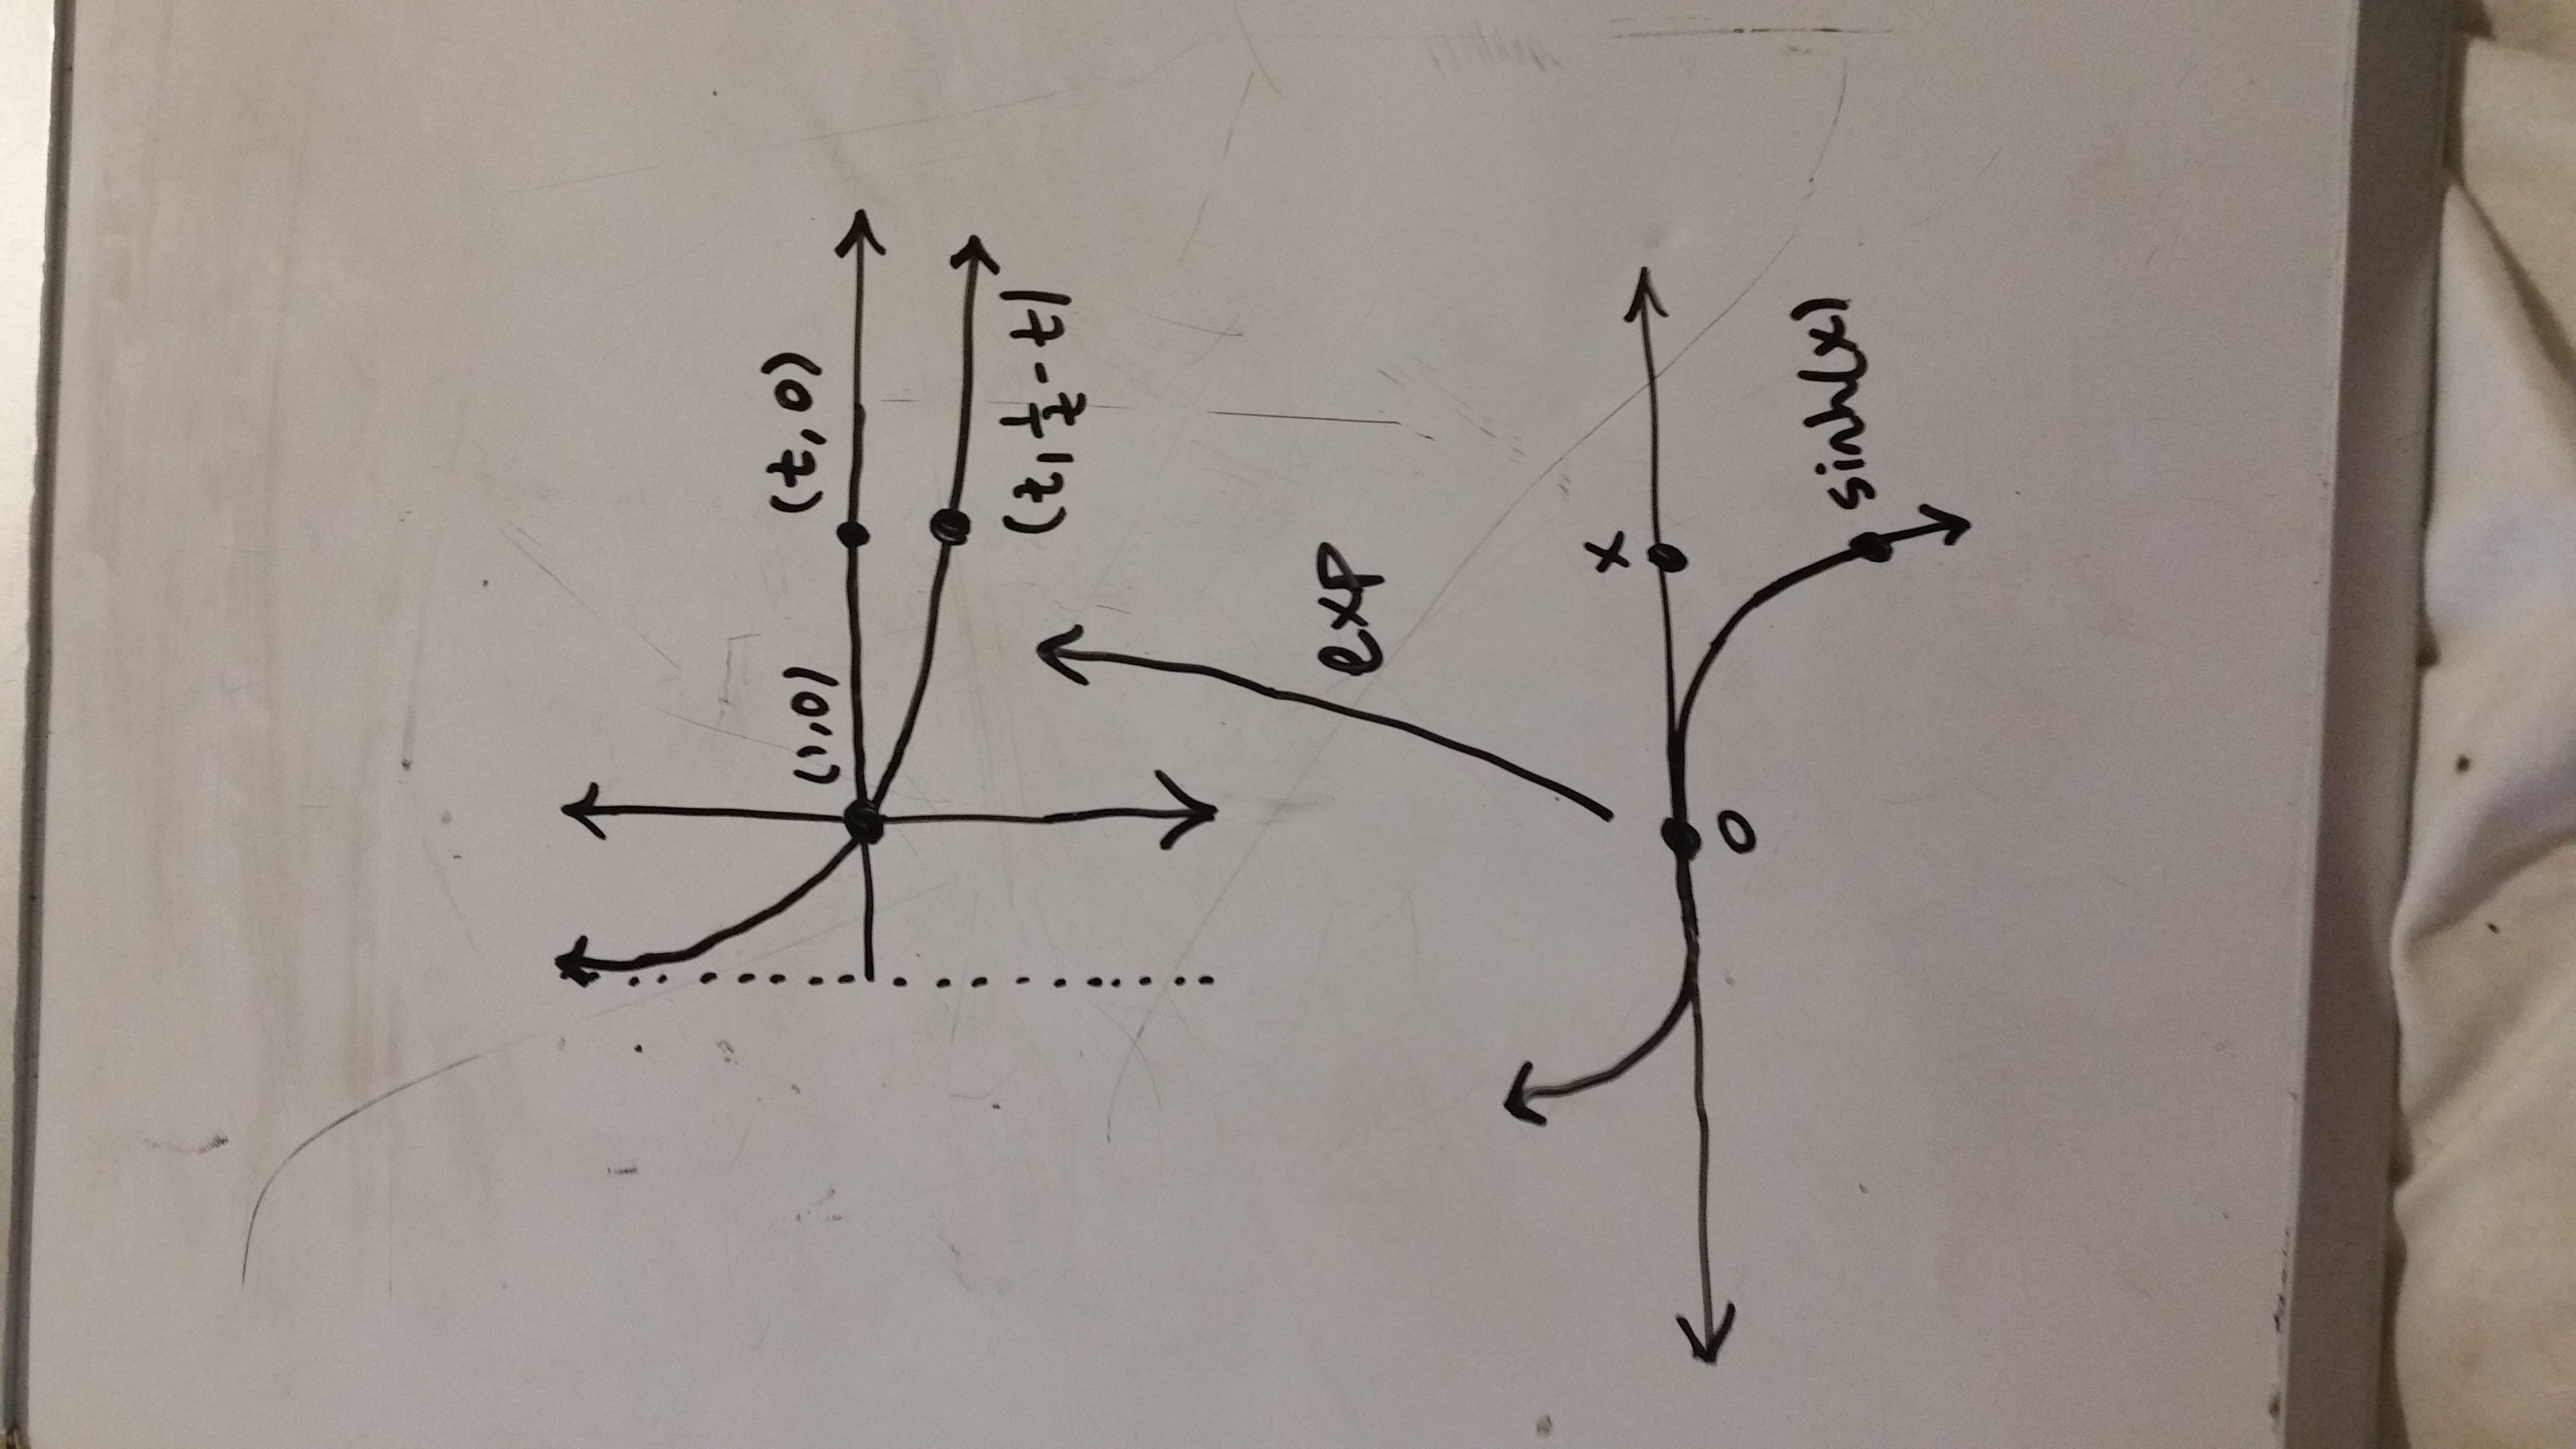 (1,0)
(t,0)
(t,1/t-t)
exp
x
0
sinh(x)